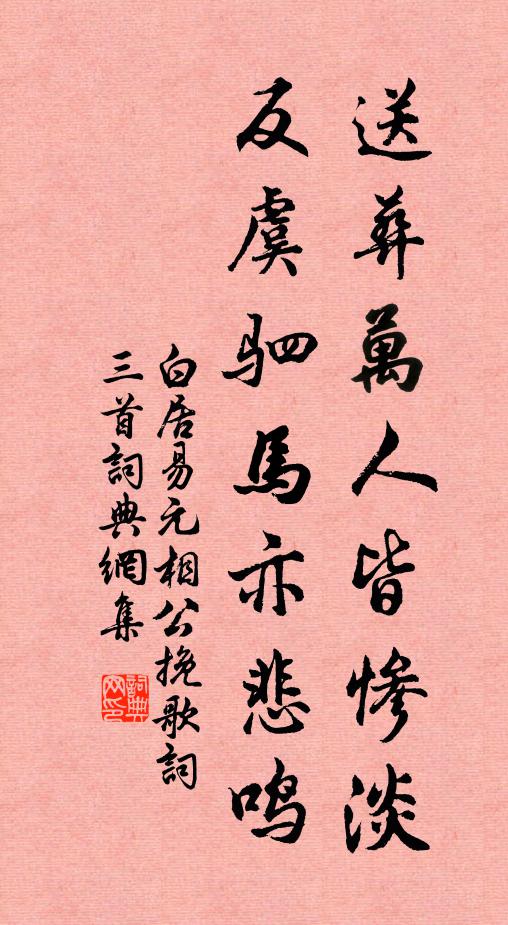 送葬萬人皆慘淡
反虞駟馬亦悲鳴
白居易元相公挽歌詞
三首詞典網集
詞典
网印